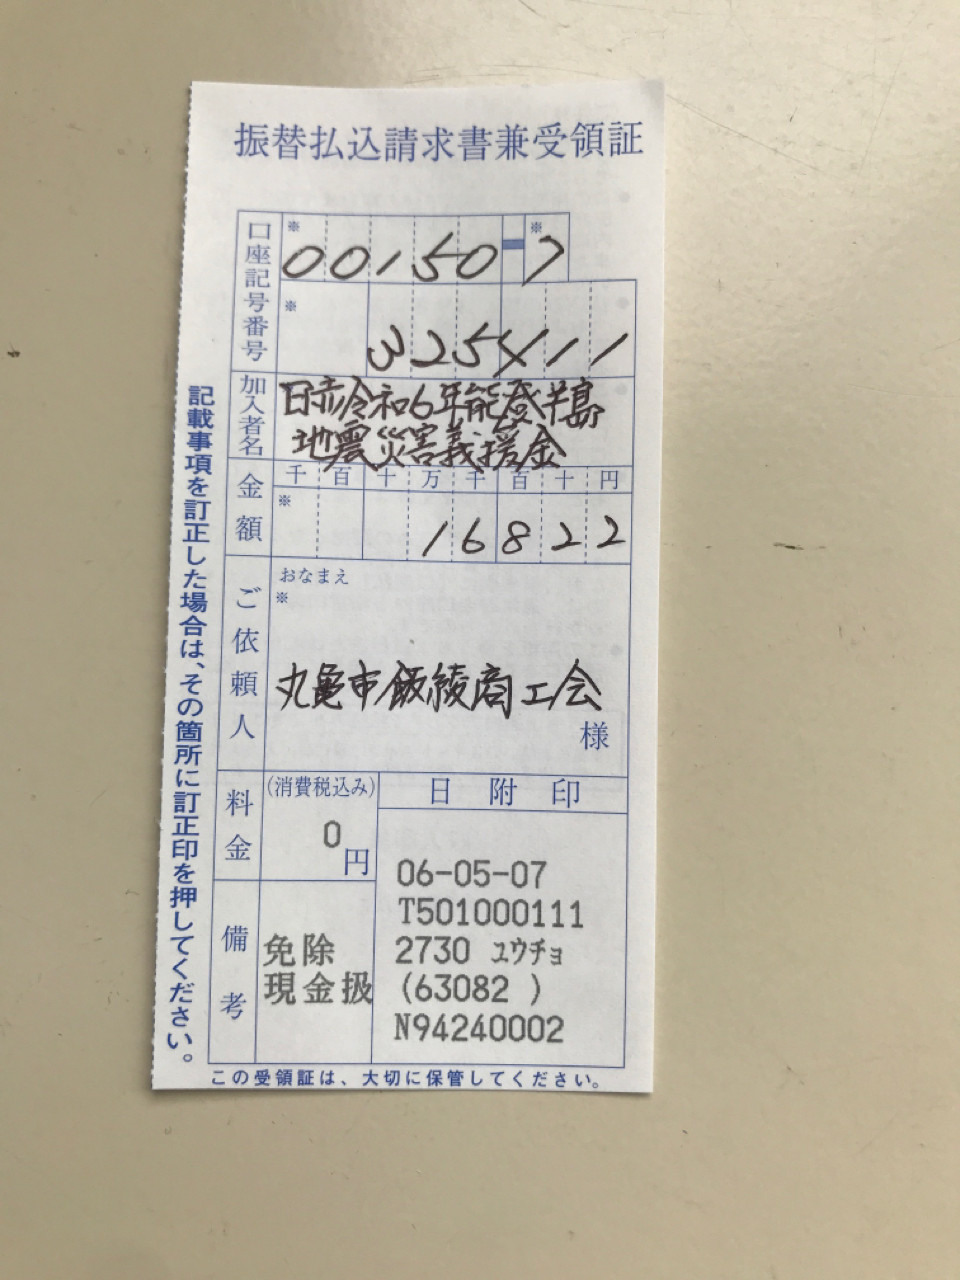 振替払込請求書兼受領証
口座記号番号
※
00150-7
※
※
325411
加入者名
日赤令和6年能登半島
地震災害義援金
金額
千百十万千百十円
※
16822
ご依頼人
おなまえ
※
丸亀市飯綾商工会
様
料金
(消費税込み)
0
円
日附印
06-05-07
T501000111
2730 ユウチョ
(63082 )
N94240002
備考
免除
現金扱
記載事項を訂正した場合は、その箇所に訂正印を押してください。
この受領証は、大切に保管してください。